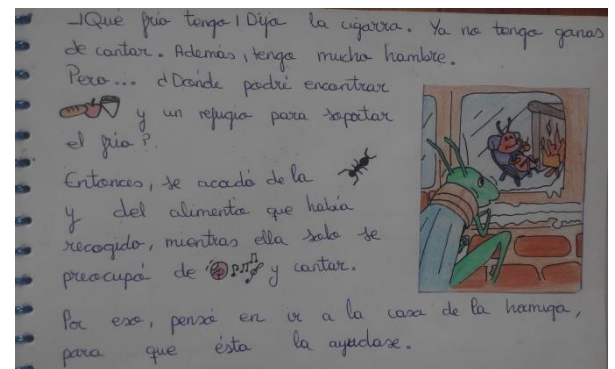 -¡Qué frío tengo! Dijo la cigarra. Ya no tengo ganas
de cantar. Además, tengo mucha hambre.
Pero... ¿Dónde podré encontrar
y un refugio para soportar
el frío?.
Entonces, se acordó de la
y del alimento que había
recogido, mientras ella solo se
preocupó de y cantar.
Por eso, pensó en ir a la casa de la hormiga,
para que ésta la ayudase.